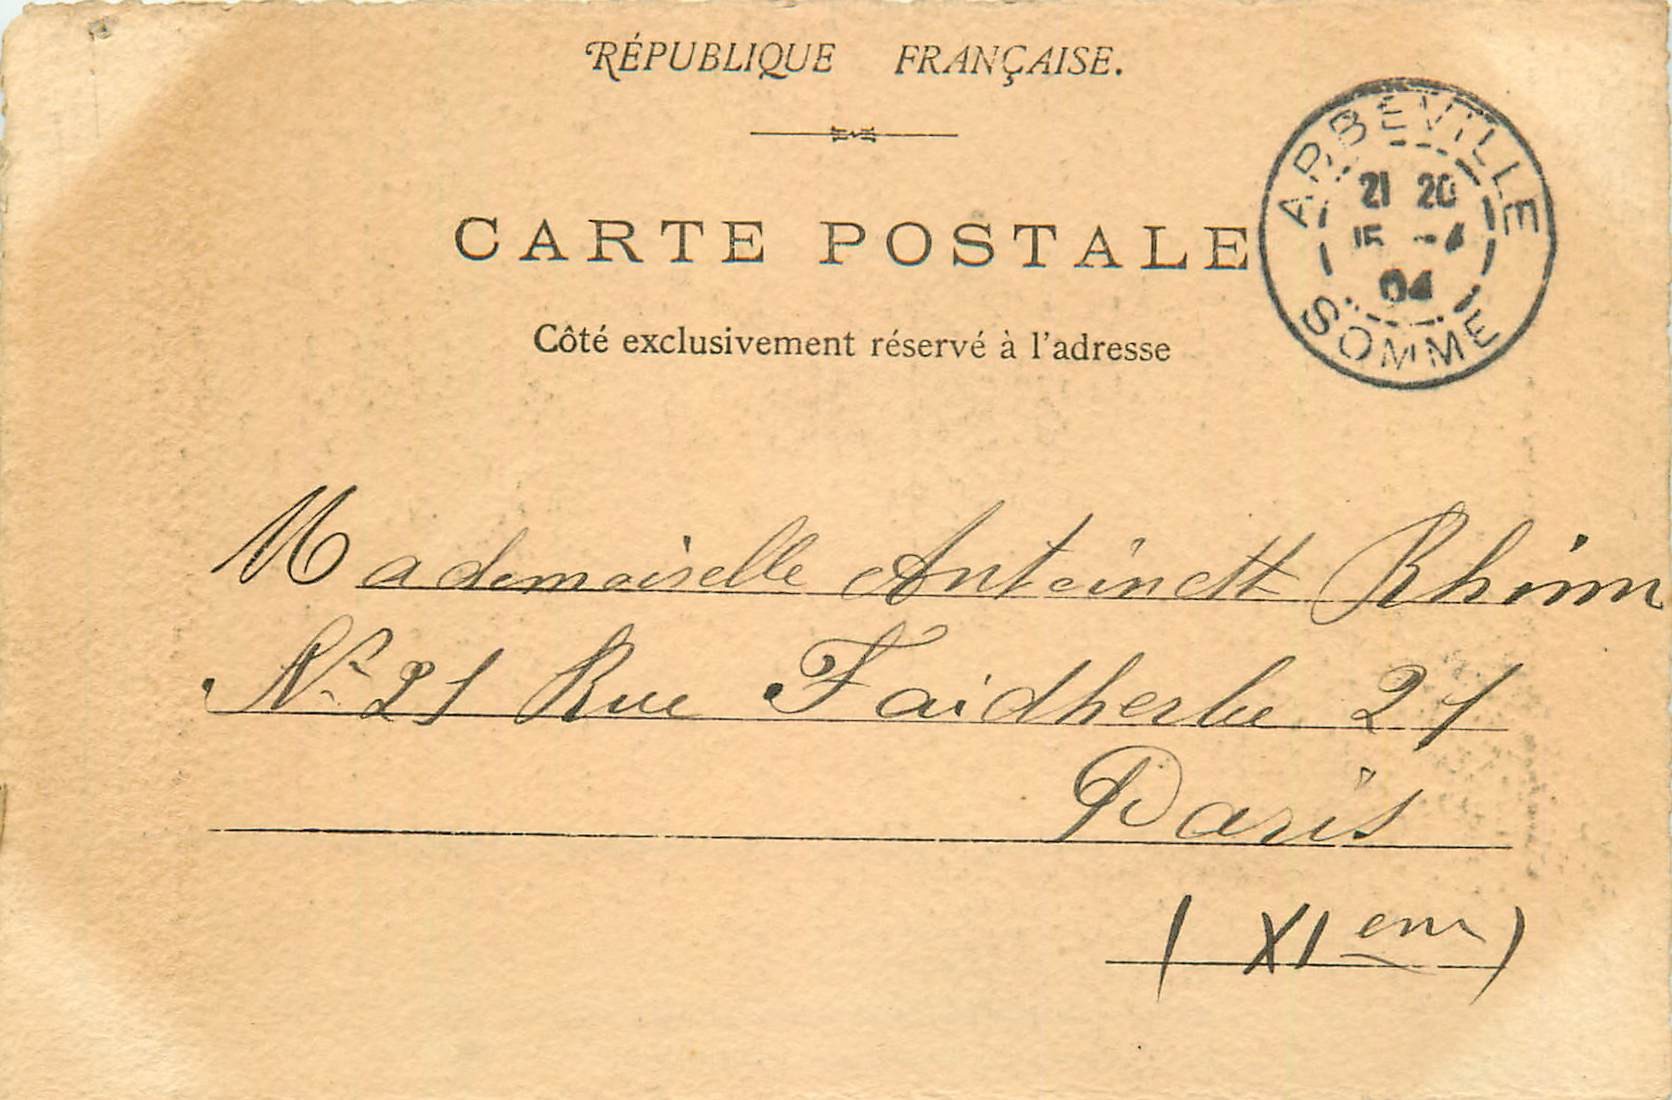 RÉPUBLIQUE FRANÇAISE.
CARTE POSTALE
Côté exclusivement réservé à l'adresse
ABBEVILLE
21 20
15 -4
04
SOMME
Mademoiselle Antoinette
No 21 Rue Faidherbe 21
Paris
(XIeme)